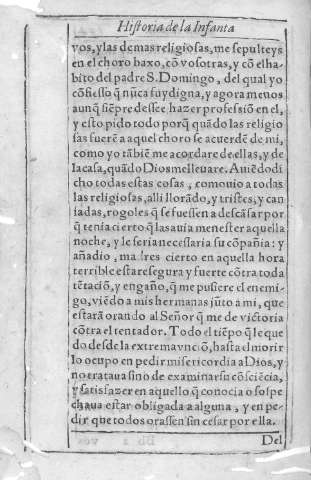 Historia de la Infanta
vos, y las demas religiosas, me sepulteys
en el choro baxo, cõ vosotras, y cõ el ha-
bito del padre S. Domingo, del qual yo
cõfiesso q̃ nũca fuy digna, y agora menos
aunq̃ siẽpre dessee hazer professiõ en el,
y esto pido todo porq̃ quãdo las religio
sas fuerẽ a aquel choro se acuerdẽ de mi,
como yo tãbiẽ me acordare de ellas, y de
la casa, quãdo Dios me lleuare. Auiẽdo di
cho todas estas cosas, comouio a todas
las religiosas, alli llorãdo, y tristes, y can
sadas, rogoles q̃ se fuessen a descãsar por
q̃ tenia cierto q̃ las auia menester aquella
noche, y le seria necessaria su cõpañia: y
añadio, madres cierto en aquella hora
terrible estare segura y fuerte cõtra toda
tẽtaciõ, y engaño, q̃ me pusiere el enemi-
go, viẽdo a mis hermanas jũto a mi, que
estarã orando al Señor q̃ me de victoria
cõtra el tentador. Todo el tiẽpo q̃ le que
do desde la extremavnciõ, hasta el morir
lo ocupo en pedir misericordia a Dios, y
no trataua sino de examinar su cõsciẽcia,
y satisfazer en aquello q̃ conocia o sospe
chaua estar obligada a alguna, y en pe-
dir que todos orassen sin cesar por ella.
Del